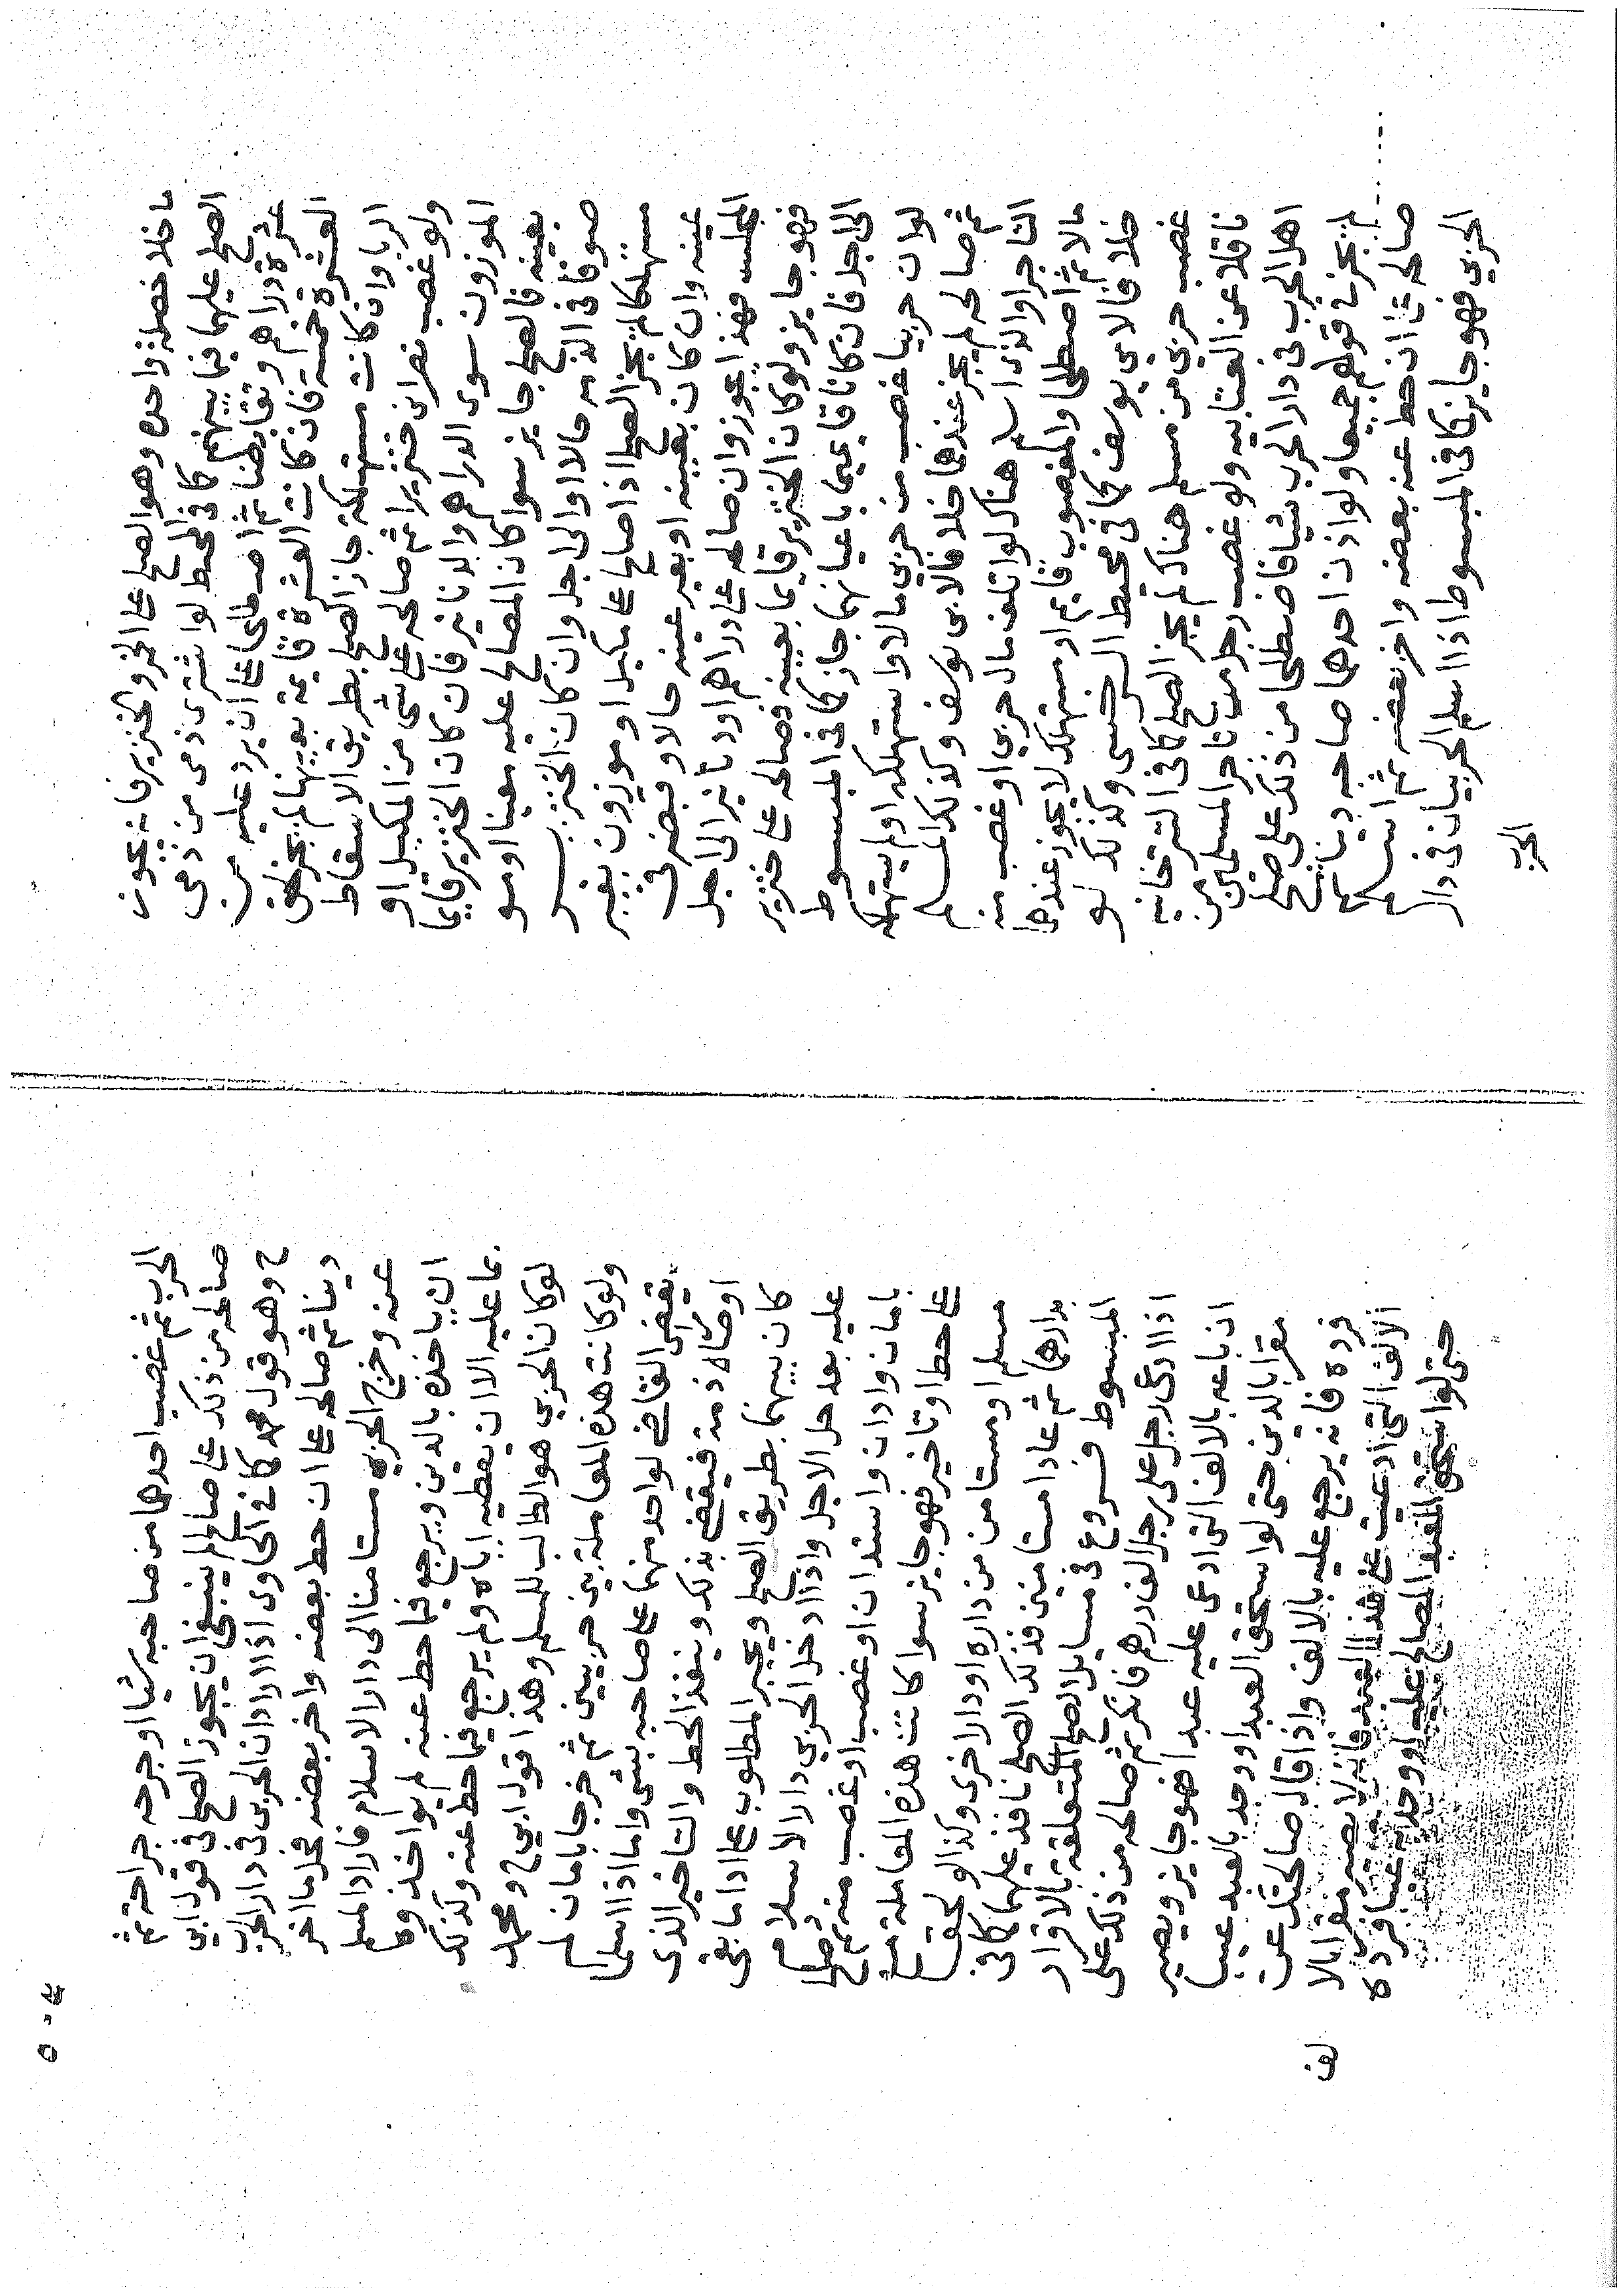 ما خلا خصلة واحده وهو الصلح على الخمر والخنزير فانه يجوز
الصلح عليهما فيما بينهم كما في المحيط لو اشترى ذمي من ذمي
عشرة دراهم وتقابضا ثم اصطلحا على ان يرد عليه من
العشرة خمسة فان كانت العشرة قايمة بعينها لم يجز لحق
الربا وان كانت مستهلكة جاز الصلح بطريق الاسقاط
ولو غصب نصراني خنزيرا ثم صالحه على شي من المكيل او
الموزون سوى الدراهم والدنانير فان كان الخنزير قايما
بعينه فالصلح جايز سوا كان المصالح عليه معينا او مو
صوفا في الذمه حالا او الى اجل وان كان الخنزير
مستهلكا لم يجز الصلح اذا صالح على مكيل او موزون بغير
عينه وان كان بعينه او بغير عينه حالا وقبضه في
المجلس فهذا يجوز وان صالحه على دراهم او دنانير الى اجل
فهو جايز ولو كان الخنزير قايما بعينه فصالحه على خنزير
الى اجل فان كانا قايمين باعيانهما جاز كما في المبسوط
لو ان حربيا غصب من حربي مالا واستهلكه او لم يستهلكه
ثم صالحه لم يجز عندهما خلافا لابي يوسف وكذلك المسلم
التاجر او الذي اسلم هناك لو اتلف مال حربي او غصب منه
مالا ثم اصطلحا والمغصوب قايم او مستهلك لا يجوز عندهما
خلافا لابي يوسف كما في محيط السرخسي وكذلك لو
غصب حربي من مسلم هناك لم يجز الصلح كما في التترخانيه
ناقلا عن العتابيه ولو غصب رجل من تاجر المسلمين من
اهل الحرب في دار الحرب شيا فاصطلحا من ذلك على صلح
لم يجز في قولهم جميعا ولو اذن احدهما صاحبه دينا ثم
صالحه على ان حط عنه بعضه واخر بعضه ثم اسلم
الحربي فهو جايز كما في المبسوط اذا اسلم الحربيان في دار
الحرب
الحرب ثم غصب احدهما من صاحبه شيا او جرحه جراحة ثم
صالحه من ذلك على صلح لم ينبغي ان يجوز الصلح في قول ابي
ح وهو قول محمد كما في الحاوي اذا ادان الحربي في دار الحرب
دينا ثم صالحه على ان حط بعضه واخر بعضه فحل ما اخر
عنه وخرج الحربي مستامنا الى دار الاسلام فاراد المسلم
ان ياخذه بالدين ويرجع فيما حط عنه لم يواخذ وما
بما عليه الا ان يعطيه اياه ولم يرجع فيما حط عنه وكذلك
لو كان الحربي هو الطالب للمسلم وهذا قول ابي ح ومحمد
ولو كانت هذه المعاملة بين حربيين ثم خرجا بامان لم
يقض القاضي لواحد منهما على صاحبه بشي واما اذا اسلما
او صارا ذمة فيقضي بذلك وينفذ الحط والتاخير الذي
كان بينهما بطريق الصلح ويجبر المطلوب على ادا ما بقي
عليه بعد حل الاجل واذا دخل الحربي دار الاسلام
بامان وادان واستدان او غصب او غصب منه ثم صالح
على حط او تاخير فهو جايز سوا كانت هذه المعاملة مع
مسلم او مستامن من داره او دار اخرى وكذا لو لحقا
بدارهما ثم عادا مستامنين فذلك الصلح نافذ عليهما كما في
المبسوط فروع في مسايل الصلح المتعلقة بالاقرار
اذا ادعى رجل على رجل الف درهم فانكر ثم صالحه من ذلك على
ان باعه بالالف التي ادعى عليه عبدا فهو جايز ويصير
مقرا بالدين حتى لو استحق العبد او وجد بالعبد عيبا
فرده فانه يرجع عليه بالالف واذا قال صالحتك عن
الالف التي ادعيت على هذا العبد فانه لا يصير مقرا بالا
لف
حتى لو استحق العبد المصالح عليه او وجد به عيبا فرده